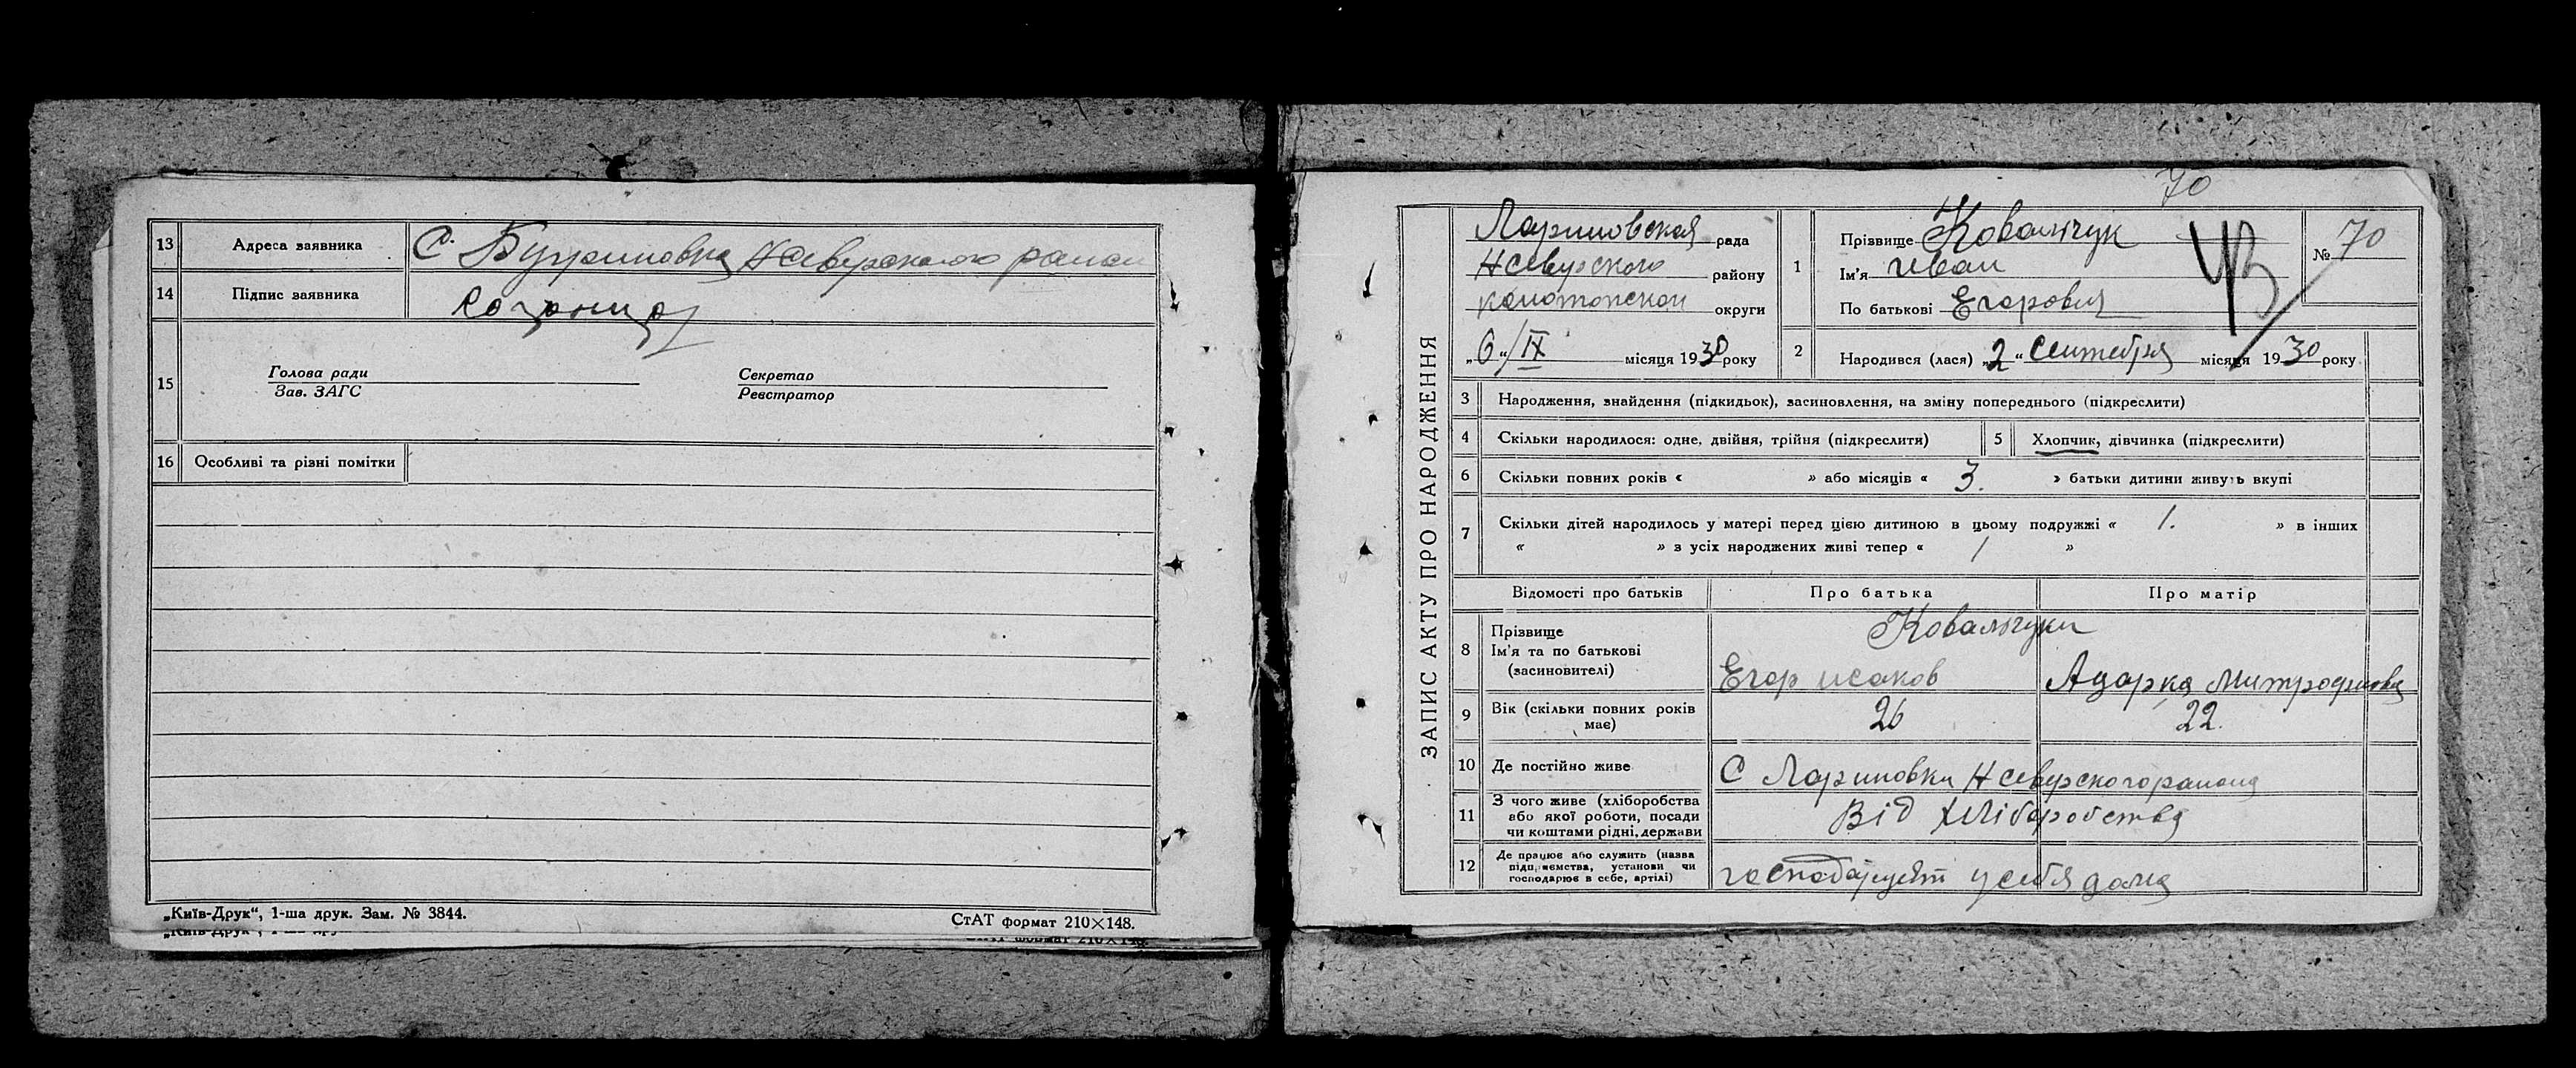 13 Адреса заявника С. Бугриновка Н северского район
14 Підпис заявника
15 Голова ради Секретар
Зав. ЗАГС Реєстратор
16 Особливі та різні помітки
„Київ-Друк“, 1-ша друк. Зам. № 3844. СтАТ формат 210×148.
70
ЗАПИС АКТУ ПРО НАРОДЖЕННЯ
Лариновская рада
Н северского району
конотопской округи
„6“/IX місяця 1930 року
1 Прізвище Ковальчук
Ім'я Иван
По батькові Егорович
№ 70
2 Народився (лася) „2“ Сентября місяця 1930 року
3 Народження, знайдення (підкидьок), засиновлення, на зміну попереднього (підкреслити)
4 Скільки народилося: одне, двійня, трійня (підкреслити) 5 Хлопчик, дівчинка (підкреслити)
6 Скільки повних років « » або місяців « 3. » батьки дитини живуть вкупі
7 Скільки дітей народилось у матері перед цією дитиною в цьому подружжі « 1. » в інших
« » з усіх народжених живі тепер « 1 »
Відомості про батьків Про батька Про матір
8 Прізвище Ковальчуки
Ім'я та по батькові
(засиновителі) Егор исаков Адарка Митрофанова
9 Вік (скільки повних років має) 26 22.
10 Де постійно живе С Лариновки Н северского района
11 З чого живе (хліборобства
або якої роботи, посади
чи коштами рідні, держави Від хліборобства
12 Де працює або служить (назва
підприємства, установи чи
господарює в себе, артілі) у себя дома